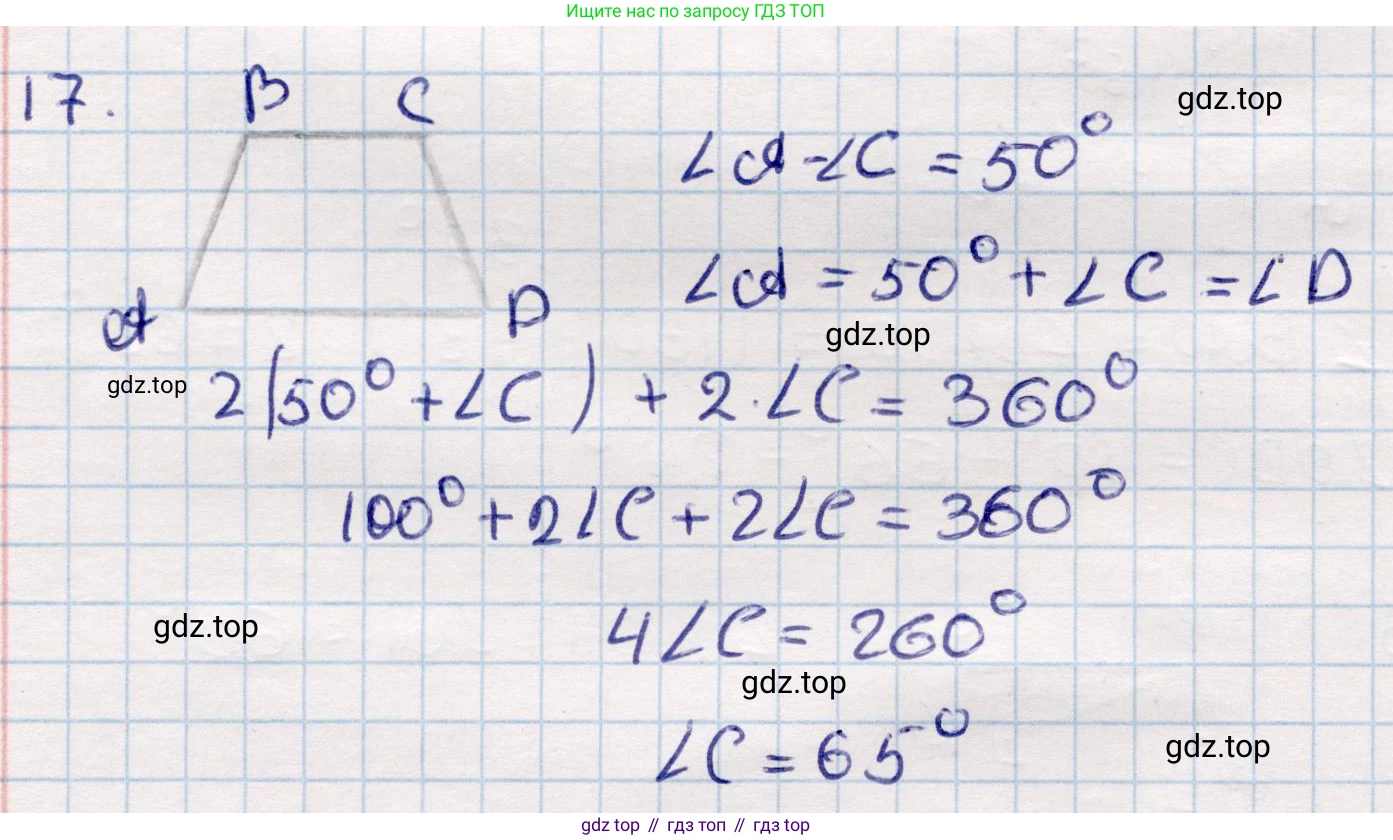 Ищите нас по запросу ГДЗ ТОП
17.
B C
gdz.top
∠A-∠C = 50°
∠A = 50° + ∠C = ∠D
A D
gdz.top
gdz.top
2(50° + ∠C) + 2·∠C = 360°
100° + 2∠C + 2∠C = 360°
gdz.top
4∠C = 260°
gdz.top
∠C = 65°
gdz.top
gdz top // гдз топ // гдз top